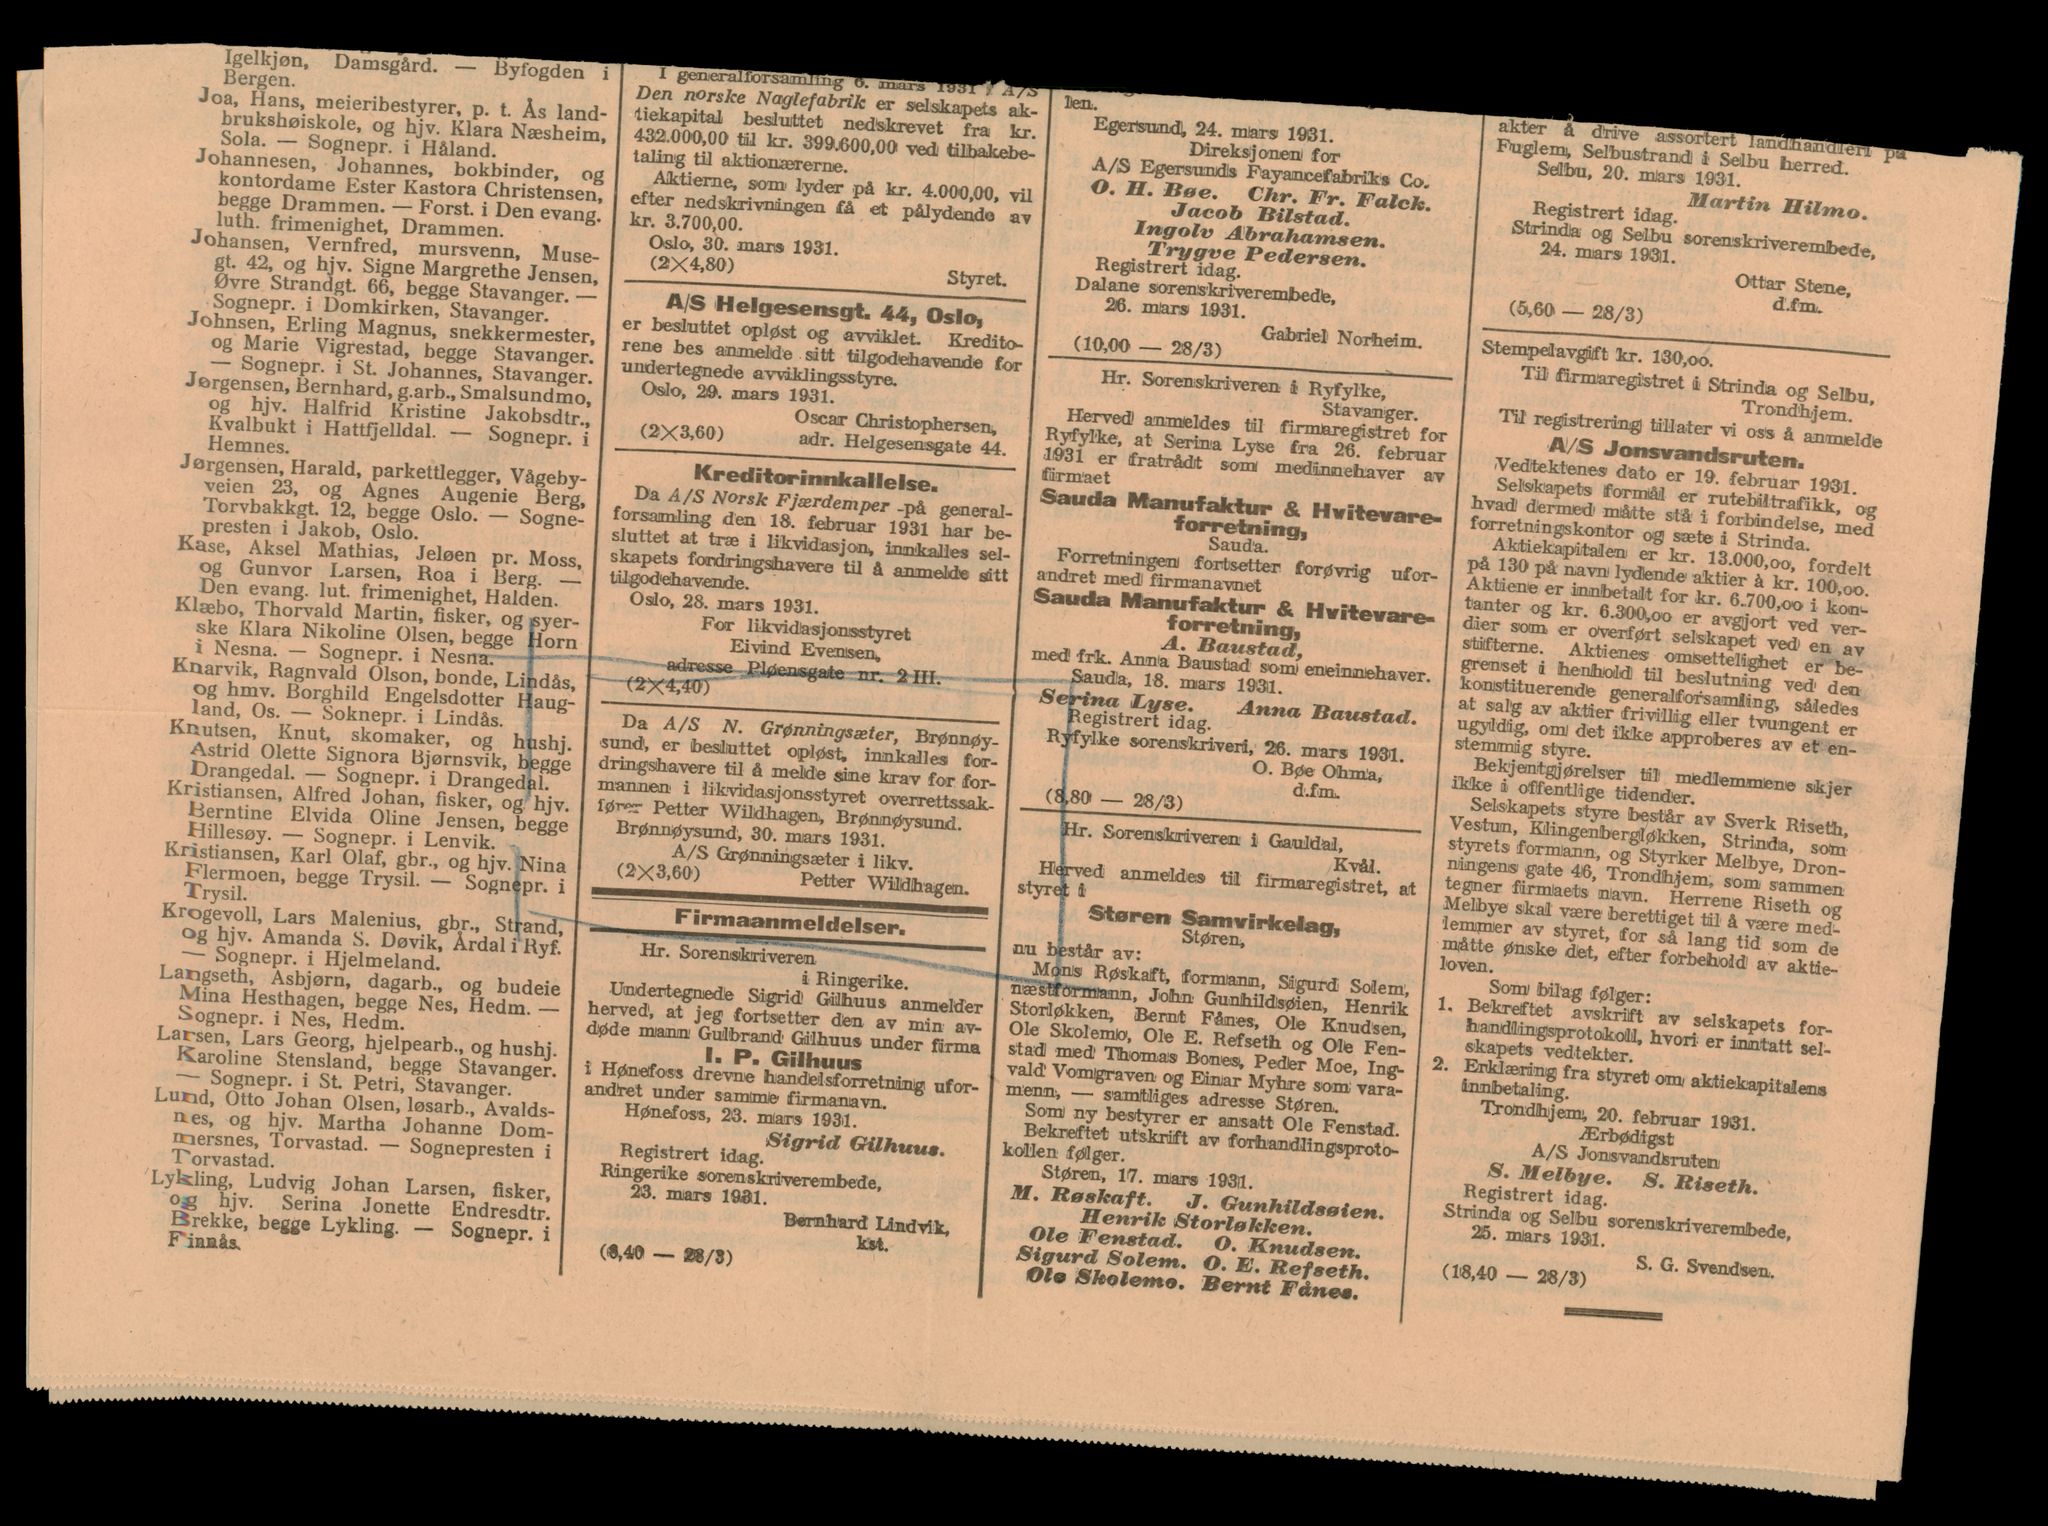 Igelkjøn, Damsgård. — Byfogden i
Bergen.
Joa, Hans, meieribestyrer, p. t. Ås land-
brukshøiskole, og hjv. Klara Næsheim,
Sola. — Sognepr. i Håland.
Johannesen, Johannes, bokbinder, og
kontordame Ester Kastora Christensen,
begge Drammen. — Forst. i Den evang.
luth. frimenighet, Drammen.
Johansen, Vernfred, mursvenn, Muse-
gt. 42, og hjv. Signe Margrethe Jensen,
Øvre Strandgt. 66, begge Stavanger. —
Sognepr. i Domkirken, Stavanger.
Johnsen, Erling Magnus, snekkermester,
og Marie Vigrestad, begge Stavanger.
— Sognepr. i St. Johannes, Stavanger.
Jørgensen, Bernhard, g.arb., Smalsundmo,
og hjv. Halfrid Kristine Jakobsdtr.,
Kvalbukt i Hattfjelldal. — Sognepr. i
Hemnes.
Jørgensen, Harald, parkettlegger, Vågeby-
veien 23, og Agnes Augenie Berg,
Torvbakkgt. 12, begge Oslo. — Sogne-
presten i Jakob, Oslo.
Kase, Aksel Mathias, Jeløen pr. Moss,
og Gunvor Larsen, Roa i Berg. —
Den evang. lut. frimenighet, Halden.
Klæbo, Thorvald Martin, fisker, og syer-
ske Klara Nikoline Olsen, begge Horn
i Nesna. — Sognepr. i Nesna.
Knarvik, Ragnvald Olson, bonde, Lindås,
og hmv. Borghild Engelsdotter Haug-
land, Os. — Soknepr. i Lindås.
Knutsen, Knut, skomaker, og hushj.
Astrid Olette Signora Bjørnsvik, begge
Drangedal. — Sognepr. i Drangedal.
Kristiansen, Alfred Johan, fisker, og hjv.
Berntine Elvida Oline Jensen, begge
Hillesøy. — Sognepr. i Lenvik.
Kristiansen, Karl Olaf, gbr., og hjv. Nina
Flermoen, begge Trysil. — Sognepr. i
Trysil.
Krogevoll, Lars Malenius, gbr., Strand,
og hjv. Amanda S. Døvik, Årdal i Ryf.
— Sognepr. i Hjelmeland.
Langseth, Asbjørn, dagarb., og budeie
Mina Hesthagen, begge Nes, Hedm. —
Sognepr. i Nes, Hedm.
Larsen, Lars Georg, hjelpearb., og hushj.
Karoline Stensland, begge Stavanger.
— Sognepr. i St. Petri, Stavanger.
Lund, Otto Johan Olsen, løsarb., Avalds-
nes, og hjv. Martha Johanne Dom-
mersnes, Torvastad. — Sognepresten i
Torvastad.
Lykling, Ludvig Johan Larsen, fisker,
og hjv. Serina Jonette Endresdtr.
Brekke, begge Lykling. — Sognepr. i
Finnås.
I generalforsamling 6. mars 1931 i A/S
Den norske Naglefabrik er selskapets ak-
tiekapital besluttet nedskrevet fra kr.
432.000,00 til kr. 399.600,00 ved tilbakebe-
taling til aktionærerne.
Aktierne, som lyder på kr. 4.000,00, vil
efter nedskrivningen få et pålydende av
kr. 3.700,00.
Oslo, 30. mars 1931.
(2×4,80)
Styret.
A/S Helgesensgt. 44, Oslo,
er besluttet opløst og avviklet. Kredito-
rene bes anmelde sitt tilgodehavende for
undertegnede avviklingsstyre.
Oslo, 29. mars 1931.
Oscar Christophersen,
(2×3,60) adr. Helgesensgate 44.
Kreditorinnkallelse.
Da A/S Norsk Fjærdemper -på general-
forsamling den 18. februar 1931 har be-
sluttet at træ i likvidasjon, innkalles sel-
skapets fordringshavere til å anmelde sitt
tilgodehavende.
Oslo, 28. mars 1931.
For likvidasjonsstyret
Eivind Evensen,
adresse Pløensgate nr. 2 III.
(2×4,40)
Da A/S N. Grønningsæter, Brønnøy-
sund, er besluttet opløst, innkalles for-
dringshavere til å melde sine krav for for-
mannen i likvidasjonsstyret overrettssak-
fører Petter Wildhagen, Brønnøysund.
Brønnøysund, 30. mars 1931.
A/S Grønningsæter i likv.
(2×3,60) Petter Wildhagen.
Firmaanmeldelser.
Hr. Sorenskriveren
i Ringerike.
Undertegnede Sigrid Gilhuus anmelder
herved, at jeg fortsetter den av min av-
døde mann Gulbrand Gilhuus under firma
I. P. Gilhuus
i Hønefoss drevne handelsforretning ufor-
andret under samme firmanavn.
Hønefoss, 23. mars 1931.
Sigrid Gilhuus.
Registrert idag.
Ringerike sorenskriverembede,
23. mars 1931.
Bernhard Lindvik,
kst.
(6,40 — 28/3)
len.
Egersund, 24. mars 1931.
Direksjonen for
A/S Egersunds Fayancefabriks Co.
O. H. Bøe. Chr. Fr. Falck.
Jacob Bilstad.
Ingolv Abrahamsen.
Trygve Pedersen.
Registrert idag.
Dalane sorenskriverembede,
26. mars 1931.
Gabriel Norheim.
(10,00 — 28/3)
Hr. Sorenskriveren i Ryfylke,
Stavanger.
Herved anmeldes til firmaregistret for
Ryfylke, at Serina Lyse fra 26. februar
1931 er fratrådt som medinnehaver av
firmaet
Sauda Manufaktur & Hvitevare-
forretning,
Sauda.
Forretningen fortsetter forøvrig ufor-
andret med firmanavnet
Sauda Manufaktur & Hvitevare-
forretning,
A. Baustad,
med frk. Anna Baustad som eneinnehaver.
Sauda, 18. mars 1931.
Serina Lyse. Anna Baustad.
Registrert idag.
Ryfylke sorenskriveri, 26. mars 1931.
O. Bøe Ohma,
d.fm.
(8,80 — 28/3)
Hr. Sorenskriveren i Gauldal,
Kvål.
Herved anmeldes til firmaregistret, at
styret i
Støren Samvirkelag,
Støren,
nu består av:
Mons Røskaft, formann, Sigurd Solem,
næstformann, John Gunhildsøien, Henrik
Storløkken, Bernt Fånes, Ole Knudsen,
Ole Skolemo, Ole E. Refseth og Ole Fen-
stad med Thomas Bones, Peder Moe, Ing-
vald Vomgraven og Einar Myhre som vara-
menn, — samtliges adresse Støren.
Som ny bestyrer er ansatt Ole Fenstad.
Bekreftet utskrift av forhandlingsproto-
kollen følger.
Støren, 17. mars 1931.
M. Røskaft. J. Gunhildsøien.
Henrik Storløkken.
Ole Fenstad. O. Knudsen.
Sigurd Solem. O. E. Refseth.
Ole Skolemo. Bernt Fånes.
akter å drive assortert landhandleri på
Fuglem, Selbustrand i Selbu herred.
Selbu, 20. mars 1931.
Martin Hilmo.
Registrert idag.
Strinda og Selbu sorenskriverembede,
24. mars 1931.
Ottar Stene,
d.fm.
(5,60 — 28/3)
Stempelavgift kr. 130,00.
Til firmaregistret i Strinda og Selbu,
Trondhjem.
Til registrering tillater vi oss å anmelde
A/S Jonsvandsruten.
Vedtektenes dato er 19. februar 1931.
Selskapets formål er rutebiltrafikk, og
hvad dermed måtte stå i forbindelse, med
forretningskontor og sæte i Strinda.
Aktiekapitalen er kr. 13.000,00, fordelt
på 130 på navn lydende aktier à kr. 100,00.
Aktiene er innbetalt for kr. 6.700,00 i kon-
tanter og kr. 6.300,00 er avgjort ved ver-
dier som er overført selskapet ved en av
stifterne. Aktienes omsettelighet er be-
grenset i henhold til beslutning ved den
konstituerende generalforsamling, således
at salg av aktier frivillig eller tvungent er
ugyldig, om det ikke approberes av et en-
stemmig styre.
Bekjentgjørelser til medlemmene skjer
ikke i offentlige tidender.
Selskapets styre består av Sverk Riseth,
Vestun, Klingenbergløkken, Strinda, som
styrets formann, og Styrker Melbye, Dron-
ningens gate 46, Trondhjem, som sammen
tegner firmaets navn. Herrene Riseth og
Melbye skal være berettiget til å være med-
lemmer av styret, for så lang tid som de
måtte ønske det, efter forbehold av aktie-
loven.
Som bilag følger:
1. Bekreftet avskrift av selskapets for-
handlingsprotokoll, hvori er inntatt sel-
skapets vedtekter.
2. Erklæring fra styret om aktiekapitalens
innbetaling.
Trondhjem, 20. februar 1931.
Ærbødigst
A/S Jonsvandsruten
S. Melbye. S. Riseth.
Registrert idag.
Strinda og Selbu sorenskriverembede,
25. mars 1931.
S. G. Svendsen.
(18,40 — 28/3)